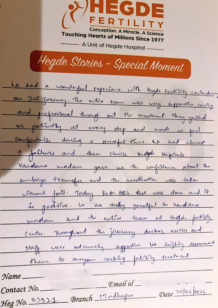 HEGDE
FERTILITY
Conception. A Miracle. A Science
Touching Hearts of Millions Since 1977
A Unit of Hegde Hospital
Hegde Stories - Special Moment
We had a wonderful experience with Hegde Fertility
our IVF journey. The entire team was very supportive, caring
and professional through out the treatment. They guided
us patiently at every step and made us feel
comfortable during a stressful time. We had almost
failures and then Hegde Hospital
Vandana madam gave us the confidence about the
embryo transfer and the was taken
without fail. Today test was done and it
is positive. We are truly grateful to Vandana
madam and the entire team at Hegde fertility
center. Throughout the journey doctors nurses and
staff were extremely supportive. We highly recommend
them to anyone seeking fertility treatment
Name
Contact No. Email id
Heg No. Branch Madhapur Date